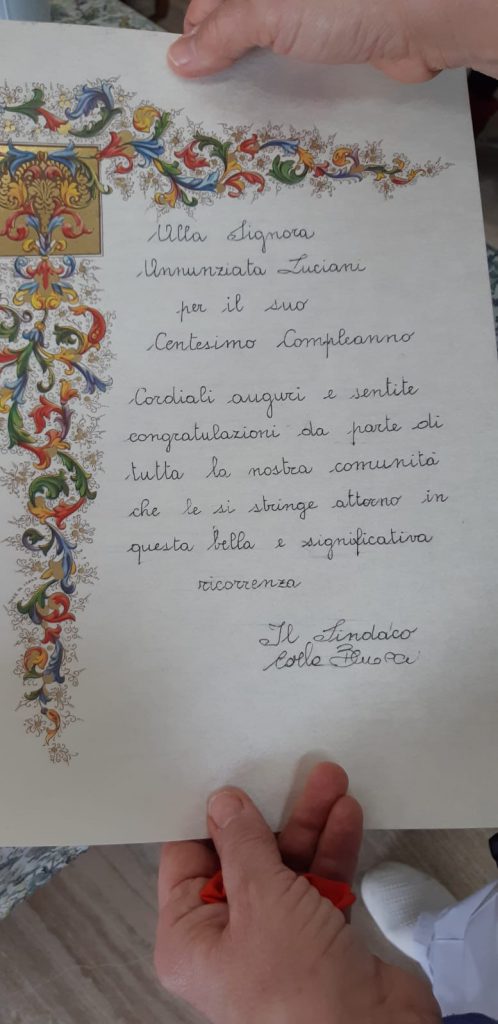 Alla Signora
Annunziata Luciani
per il suo
Centesimo Compleanno
Cordiali auguri e sentite
congratulazioni da parte di
tutta la nostra comunità
che le si stringe attorno in
questa bella e significativa
ricorrenza
Il Sindaco